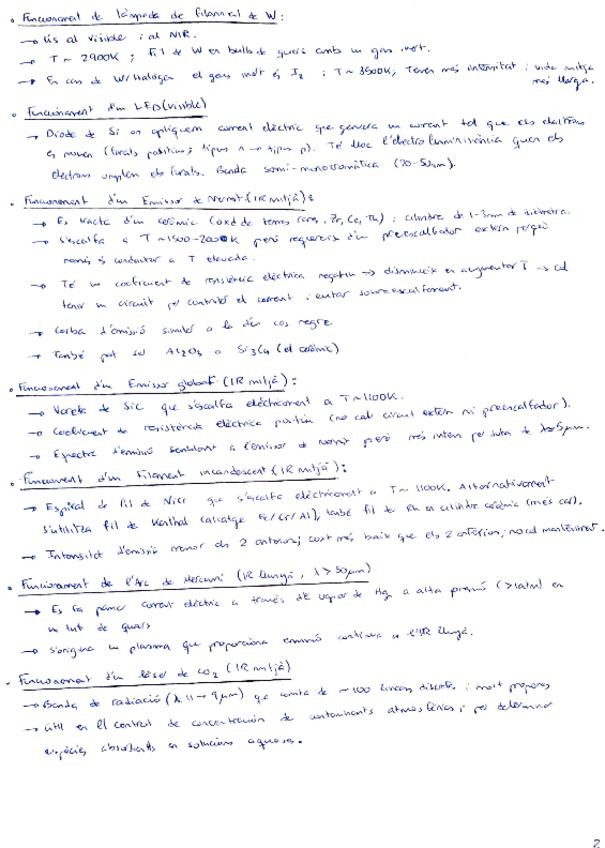 • Funcionament de làmpada de filament de W:
→ Ús al visible i al NIR.
→ T ~ 2900K; fil de W en bulb de quars amb un gas inert.
→ En cas de W/Halògen el gas inert és I2; T ~ 3500K; Tenen més intensitat i vida mitja més llarga.
• Funcionament d'un LED (visible)
→ Díode de Si on apliquem corrent elèctric que genera un corrent tal que els electrons
es mouen (forats positius; tipus n → tipus p). Té lloc l'electroluminiscència quan els
electrons omplen els forats. Banda semi-monocromàtica (20-50nm).
• Funcionament d'un Emissor de Nernst (IR mitjà):
→ Es tracta d'un ceràmic (òxid de terres rares, Zr, Ce, Th); cilindre de 1-3mm de diàmetre.
→ S'escalfa a T ~ 1500-2000K però requereix d'un preescalfador extern perquè
només és conductor a T elevada.
→ Té un coeficient de resistència elèctrica negatiu → disminueix en augmentar T → cal
tenir un circuit per controlar el corrent i evitar sobreescalfament.
→ Corba d'emissió similar a la d'un cos negre.
→ També pot ser Al2O3 o Si3C4 (el ceràmic)
• Funcionament d'un Emissor globar (IR mitjà):
→ Vareta de SiC que s'escalfa elèctricament a T ~ 1100K.
→ Coeficient de resistència elèctrica positiu (no cal circuit extern ni preescalfador).
→ Espectre d'emissió semblant a l'emissor de Nernst però més intens per sota de λ=5µm.
• Funcionament d'un Filament incandescent (IR mitjà):
→ Espiral de fil de NiCr que s'escalfa elèctricament a T ~ 1100K. Alternativament
s'utilitza fil de Kanthal (aliatge Fe/Cr/Al), també fil de Rh en cilindre ceràmic (més car).
→ Intensitat d'emissió menor als 2 anteriors; cost més baix que els 2 anteriors; no cal manteniment.
• Funcionament de l'Arc de Mercuri (IR llunyà, λ > 50µm)
→ Es fa passar corrent elèctric a través de vapor de Hg a alta pressió (>1atm) en
un tub de quars
→ S'origina un plasma que proporciona emissió contínua a l'IR llunyà.
• Funcionament d'un làser de CO2 (IR mitjà)
→ Banda de radiació (λ 11 → 9µm) que consta de ~100 línies discretes i molt properes
→ Útil en el control de concentració de contaminants atmosfèrics i per determinar
espècies absorbents en solucions aquoses.
2